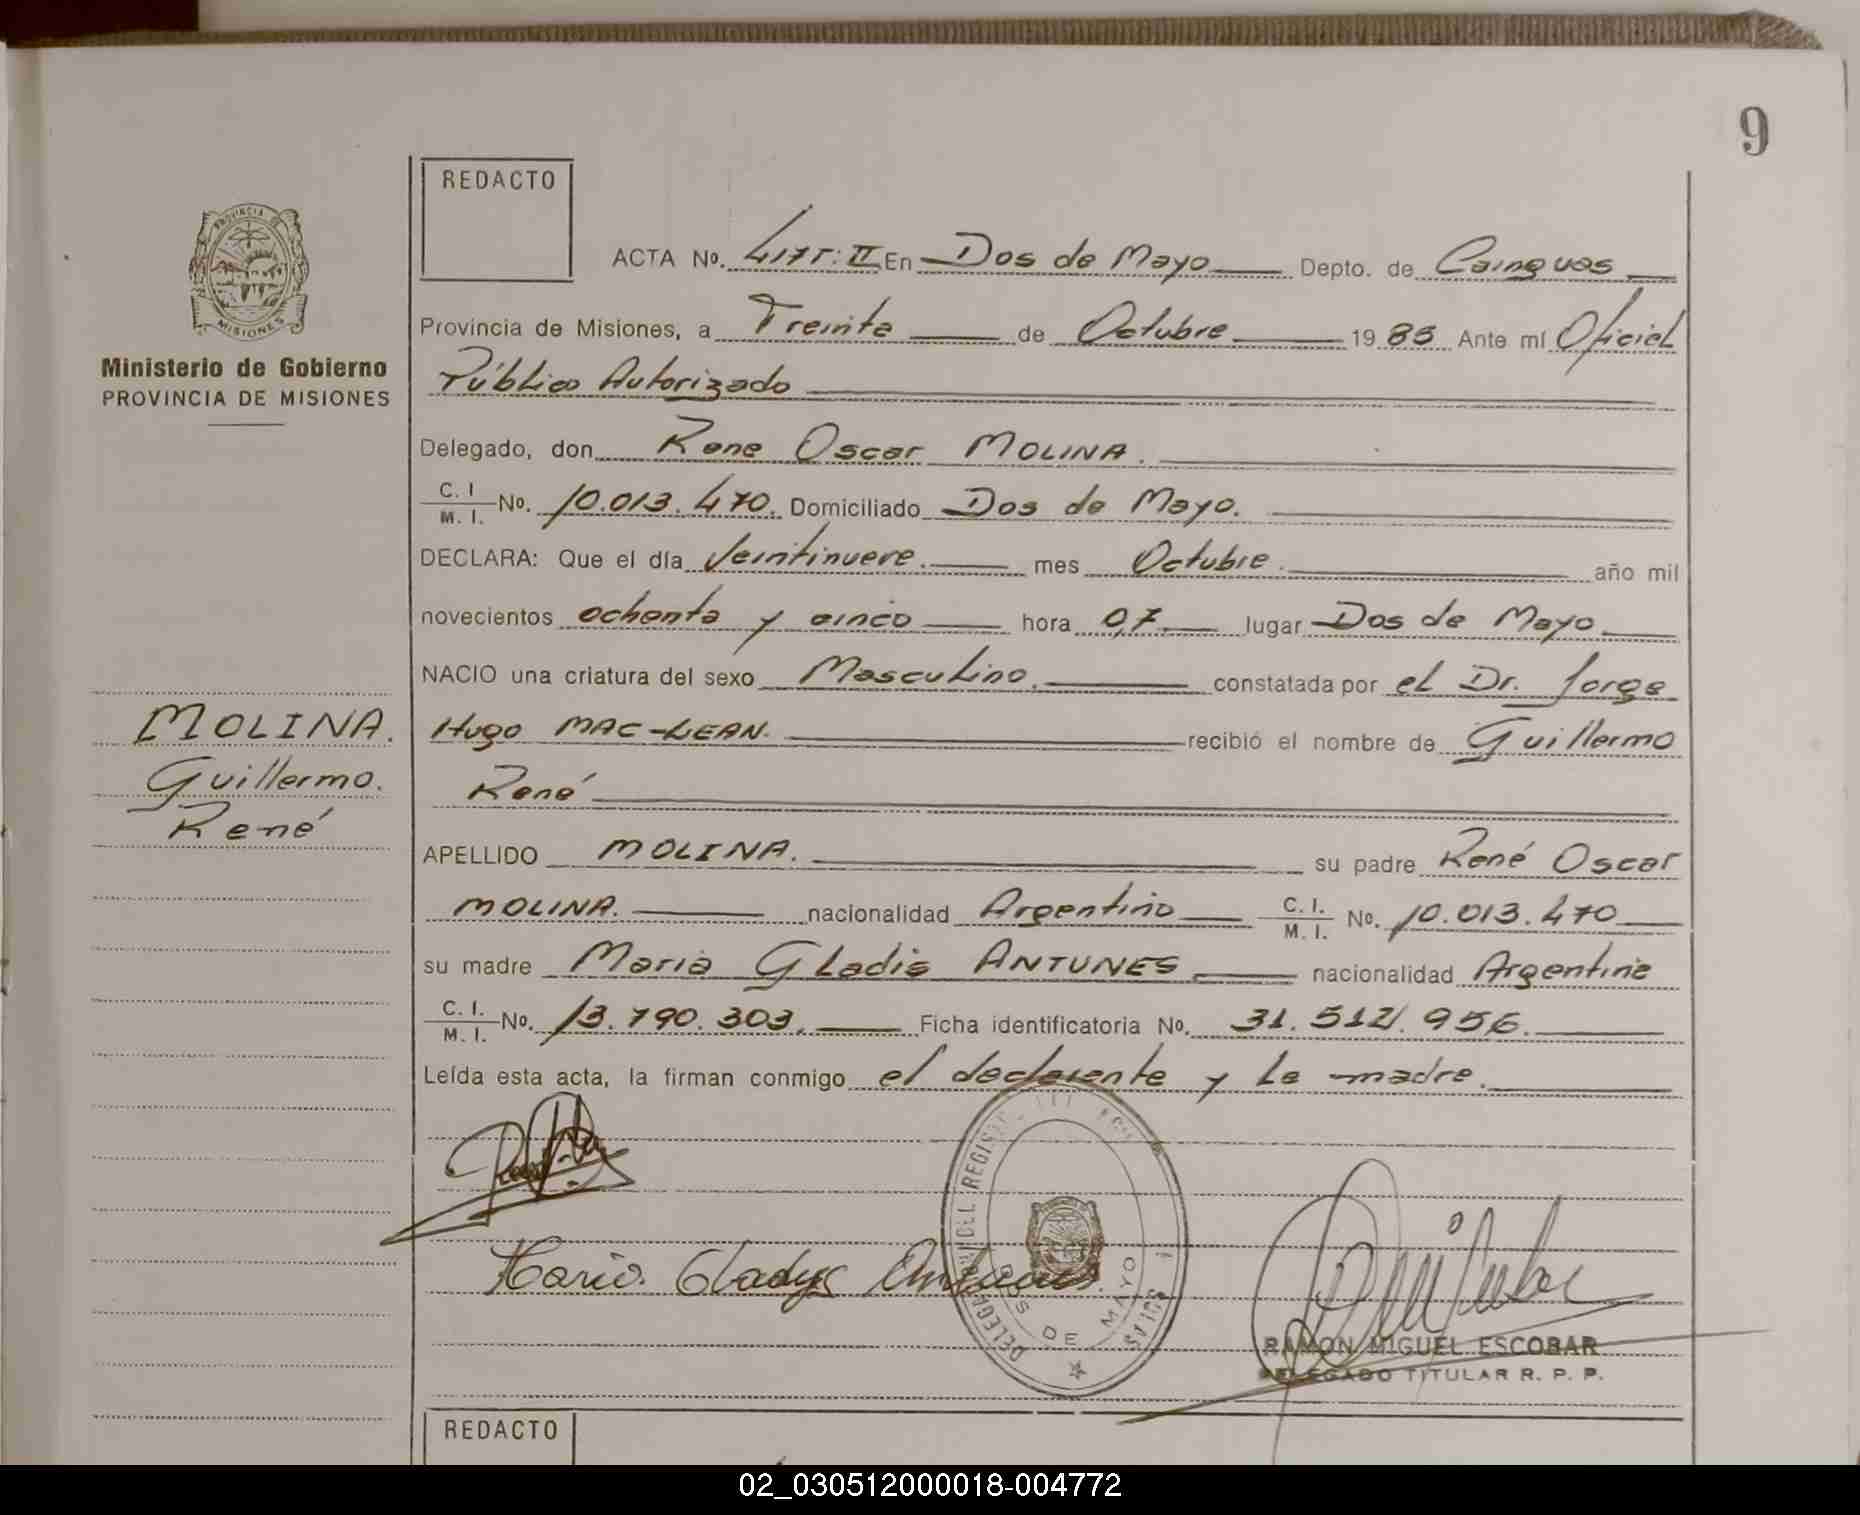 9
REDACTO
PROVINCIA DE
MISIONES
Ministerio de Gobierno
PROVINCIA DE MISIONES
ACTA No. 417T: II En Dos de Mayo Depto. de Cainguas
Provincia de Misiones, a Treinta de Octubre 1985 Ante mí Oficial
Público Autorizado
Delegado, don Rene Oscar MOLINA.
C. I. / M. I. No. 10.013.470. Domiciliado Dos de Mayo.
DECLARA: Que el día Veintinueve. mes Octubre. año mil
novecientos ochenta y cinco hora 07 lugar Dos de Mayo
NACIO una criatura del sexo Masculino. constatada por el Dr. Jorge
Hugo MAC-LEAN. recibió el nombre de Guillermo
René
APELLIDO MOLINA. su padre René Oscar
MOLINA. nacionalidad Argentino C. I. / M. I. No. 10.013.470
su madre Maria Gladis ANTUNES nacionalidad Argentina
C. I. / M. I. No. 13.790.303. Ficha identificatoria No. 31.512.956.
Leída esta acta, la firman conmigo el declarente y la madre.
MOLINA.
Guillermo.
René
Maria Gladys Antunes
DOS DE MAYO
RAMON MIGUEL ESCOBAR
DELEGADO TITULAR R. P. P.
REDACTO
02_030512000018-004772